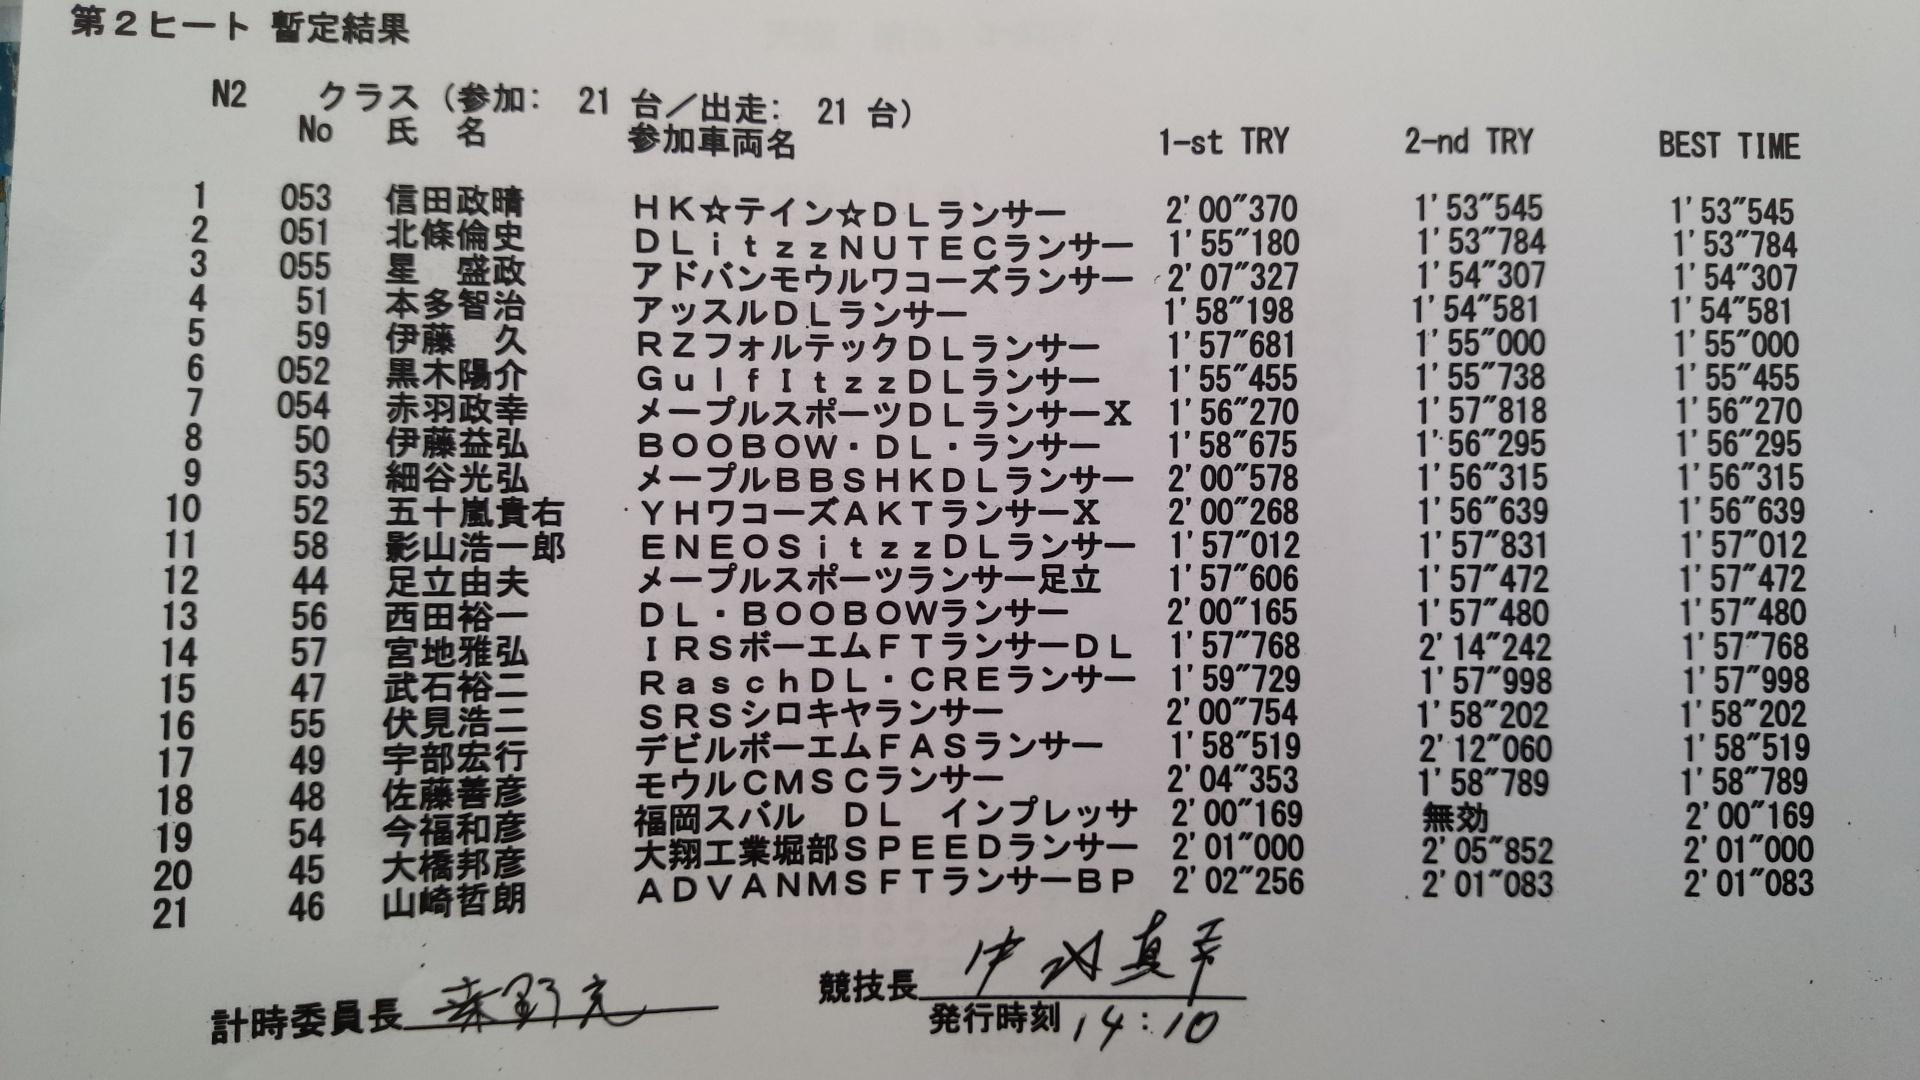 第2ヒート 暫定結果
N2 クラス (参加: 21 台/出走: 21 台)
No 氏 名 参加車両名 1-st TRY 2-nd TRY BEST TIME
1 053 信田政晴 HK☆テイン☆DLランサー 2'00"370 1'53"545 1'53"545
2 051 北條倫史 DLitzzNUTECランサー 1'55"180 1'53"784 1'53"784
3 055 星 盛政 アドバンモウルワコーズランサー 2'07"327 1'54"307 1'54"307
4 51 本多智治 アッスルDLランサー 1'58"198 1'54"581 1'54"581
5 59 伊藤 久 RZフォルテックDLランサー 1'57"681 1'55"000 1'55"000
6 052 黒木陽介 GulfItzzDLランサー 1'55"455 1'55"738 1'55"455
7 054 赤羽政幸 メープルスポーツDLランサーX 1'56"270 1'57"818 1'56"270
8 50 伊藤益弘 BOOBOW・DL・ランサー 1'58"675 1'56"295 1'56"295
9 53 細谷光弘 メープルBBSHKDLランサー 2'00"578 1'56"315 1'56"315
10 52 五十嵐貴右 YHワコーズAKTランサーX 2'00"268 1'56"639 1'56"639
11 58 影山浩一郎 ENEOSitzzDLランサー 1'57"012 1'57"831 1'57"012
12 44 足立由夫 メープルスポーツランサー足立 1'57"606 1'57"472 1'57"472
13 56 西田裕一 DL・BOOBOWランサー 2'00"165 1'57"480 1'57"480
14 57 宮地雅弘 IRSボーエムFTランサーDL 1'57"768 2'14"242 1'57"768
15 47 武石裕二 RaschDL・CREランサー 1'59"729 1'57"998 1'57"998
16 55 伏見浩二 SRSシロキヤランサー 2'00"754 1'58"202 1'58"202
17 49 宇部宏行 デビルボーエムFASランサー 1'58"519 2'12"060 1'58"519
18 48 佐藤善彦 モウルCMSCランサー 2'04"353 1'58"789 1'58"789
19 54 今福和彦 福岡スバル DL インプレッサ 2'00"169 無効 2'00"169
20 45 大橋邦彦 大翔工業堀部SPEEDランサー 2'01"000 2'05"852 2'01"000
21 46 山崎哲朗 ADVANMSFTランサーBP 2'02"256 2'01"083 2'01"083
競技長
計時委員長
発行時刻 14:10